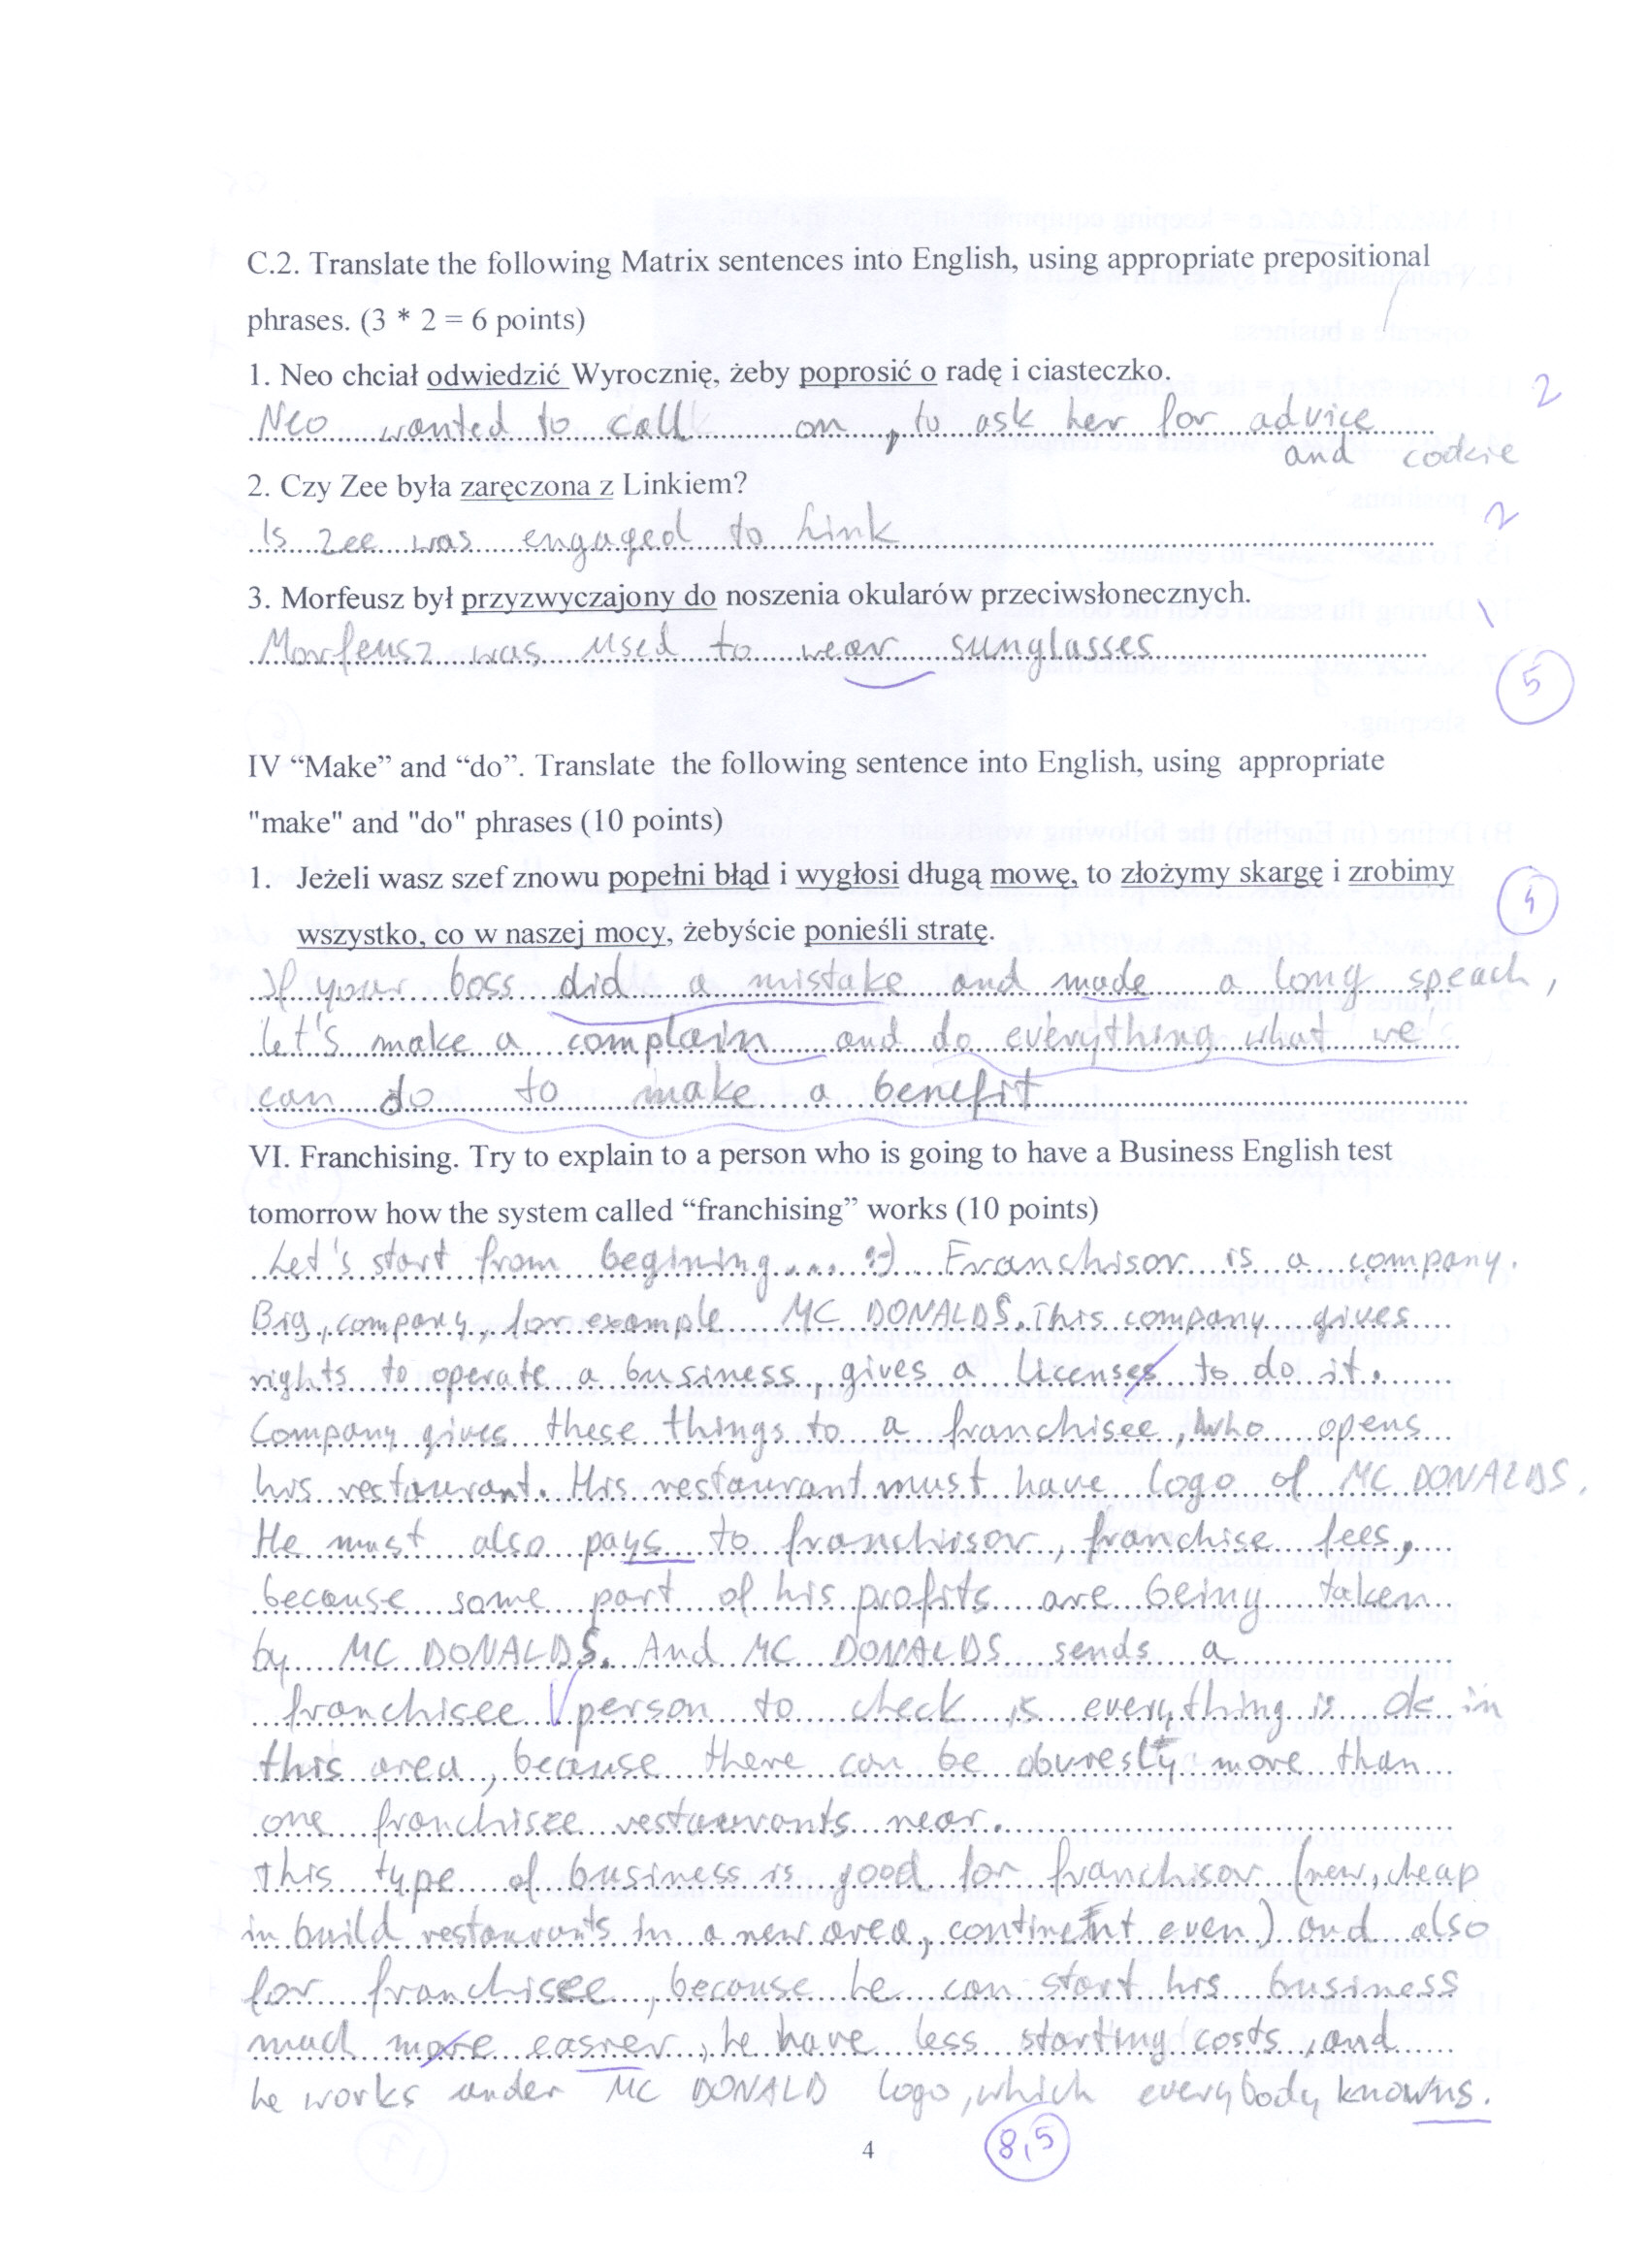 C.2. Translate the following Matrix sentences into English, using appropriate prepositional
phrases. (3 * 2 = 6 points)
1. Neo chciał odwiedzić Wyrocznię, żeby poprosić o radę i ciasteczko.
Neo wanted to call on, to ask her for advice
and cookie
2
2. Czy Zee była zaręczona z Linkiem?
Is Zee was engaged to Link
2
3. Morfeusz był przyzwyczajony do noszenia okularów przeciwsłonecznych.
Morfeusz was used to wear sunglasses
1
5
IV “Make” and “do”. Translate the following sentence into English, using appropriate
"make" and "do" phrases (10 points)
1. Jeżeli wasz szef znowu popełni błąd i wygłosi długą mowę, to złożymy skargę i zrobimy
wszystko, co w naszej mocy, żebyście ponieśli stratę.
4
If your boss did a mistake and made a long speach,
let's make a complain and do everything what we
can do to make a benefit
VI. Franchising. Try to explain to a person who is going to have a Business English test
tomorrow how the system called “franchising” works (10 points)
Let's start from begining... :-) Franchisor is a company.
Big, company, for example MC DONALDS. This company gives
rights to operate a business, gives a licenses to do it.
Company gives these things to a franchisee, who opens
his restaurant. His restaurant must have logo of MC DONALDS.
He must also pays to franchisor, franchise fees,
because some part of his profits are being taken
by MC DONALDS. And MC DONALDS sends a
franchisee person to check is everything is ok in
this area, because there can be more than
one franchisee restaurants near.
This type of business is good for franchisor (new, cheap
in build restaurants in a new area, continent even) and also
for franchisee, because he can start his business
much more easier, he have less starting costs, and
he works under MC DONALD logo, which everybody knowns.
4
8,5